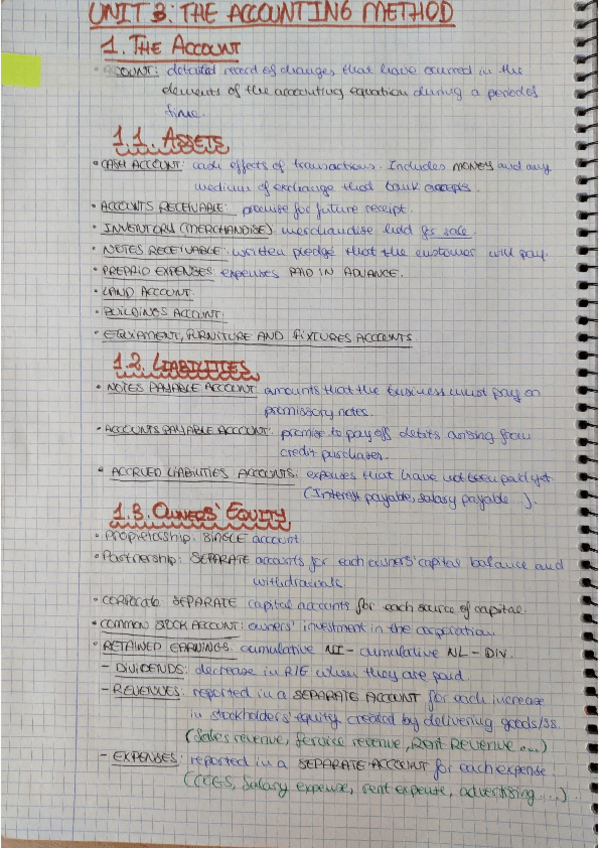 UNIT 3: THE ACCOUNTING METHOD
1. THE ACCOUNT
• ACCOUNT: detailed record of changes that have ocurred in the
elements of the accounting equation during a period of
time.
1.1. ASSETS
• CASH ACCOUNT: cash effects of transactions. Includes MONEY and any
medium of exchange that bank accepts.
• ACCOUNTS RECEIVABLE: promise for future receipt.
• INVENTORY (MERCHANDISE): merchandise held for sale.
• NOTES RECEIVABLE: written pledge that the customer will pay.
• PREPAID EXPENSES: expenses PAID IN ADVANCE.
• LAND ACCOUNT.
• BUILDINGS ACCOUNT.
• EQUIPAMENT, FURNITURE AND FIXTURES ACCOUNTS
1.2. LIABILITIES
• NOTES PAYABLE ACCOUNT: amounts that the business must pay on
promissory notes.
• ACCOUNTS PAYABLE ACCOUNT: promise to pay off debits arising from
credit purchases.
• ACCRUED LIABILITIES ACCOUNTS: expenses that have not been paid yet
(Interest payable, salary payable...).
1.3. OWNERS' EQUITY
• Proprietorship: SINGLE account
• Partnership: SEPARATE accounts for each owners' capital balance and
withdrawals
• CORPORATE SEPARATE capital accounts for each source of capital.
• COMMON STOCK ACCOUNT: owners' investment in the corporation.
• RETAINED EARNINGS: cumulative NI - cumulative NL - DIV.
- DIVIDENDS: decrease in R/E when they are paid.
- REVENUES: reported in a SEPARATE ACCOUNT for each increase
in stockholders' equity created by delivering goods/ss.
(Sales revenue, Service revenue, Rent REVENUE...)
- EXPENSES: reported in a SEPARATE ACCOUNT for each expense
(COGS, Salary expense, rent expense, advertising ....)